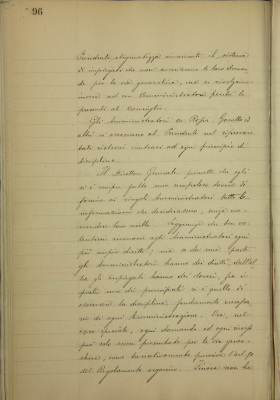 96
Presidente stigmatizza vivamente il sistema
di impiegati che non avanzano le loro doman-
de per la via gerarchica, ma si rivolgono
invece ad un Amministratore perchè le
presenti al Consiglio.
Gli Amministratori
altri si associano al Presidente nel riprovare
tali sistemi contrari ad ogni principio di
disciplina.
Il Direttore Generale premette che egli
si è sempre fatto uno scrupoloso dovere di
fornire ai singoli Amministratori tutte le
informazioni che desiderassero, senza na-
scondere loro nulla. Soggiunge che ben vo-
lentieri riconosce agli Amministratori ogni
più ampio diritto; ma se da una parte
gli Amministratori hanno dei diritti, dall'al-
tra gli impiegati hanno dei doveri, fra i
quali uno dei principali si è quello di
osservare la disciplina, fondamento precipuo
di ogni Amministrazione. Ora, nel
caso speciale, ogni domanda ed ogni recla-
mo deve essere presentato per la via gerar-
chica, come tassativamente prescrive l'art.
del Regolamento organico. Finora non ha